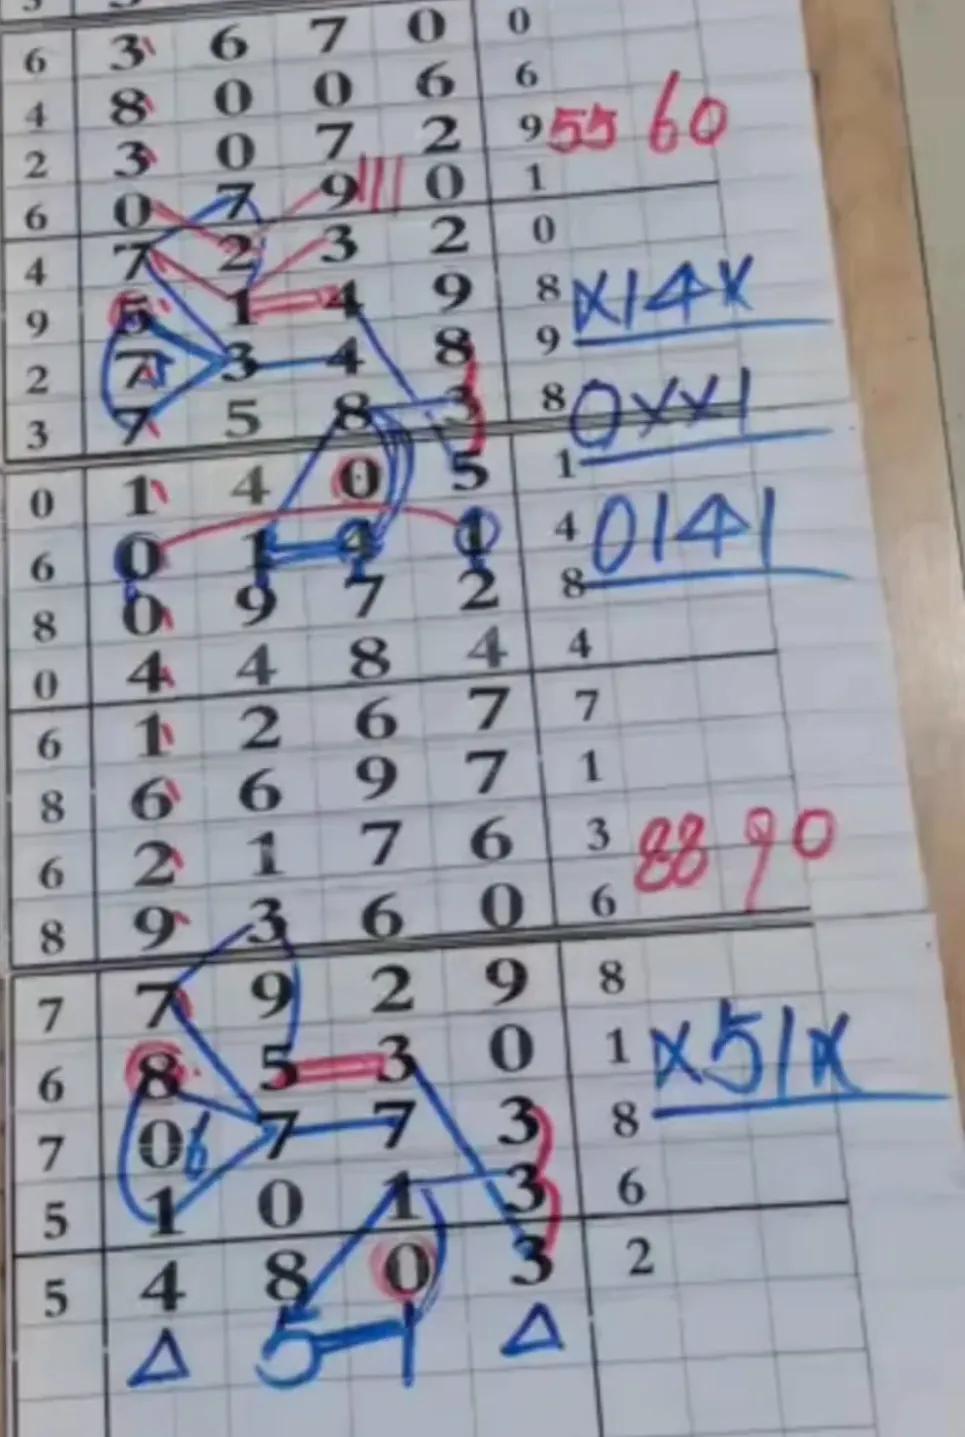 6 3 6 7 0 0
4 8 0 0 6 6
2 3 0 7 2 9 55 60
6 0 7 9 0 1
4 7 2 3 2 0
9 5 1 4 9 8 X14X
2 7 3 4 8 9
3 7 5 8 3 8 0XX1
0 1 4 0 5 1
6 0 1 4 1 4 0141
8 0 9 7 2 8
0 4 4 8 4 4
6 1 2 6 7 7
8 6 6 9 7 1
6 2 1 7 6 3 88 90
8 9 3 6 0 6
7 7 9 2 9 8
6 8 5 3 0 1 X51X
7 0 6 7 7 3 8
5 1 0 1 3 6
5 4 8 0 3 2
Δ 5 1 Δ